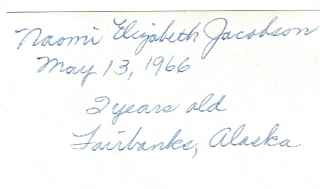 Naomi Elizabeth Jacobson
May 13, 1966
2 years old
Fairbanks, Alaska